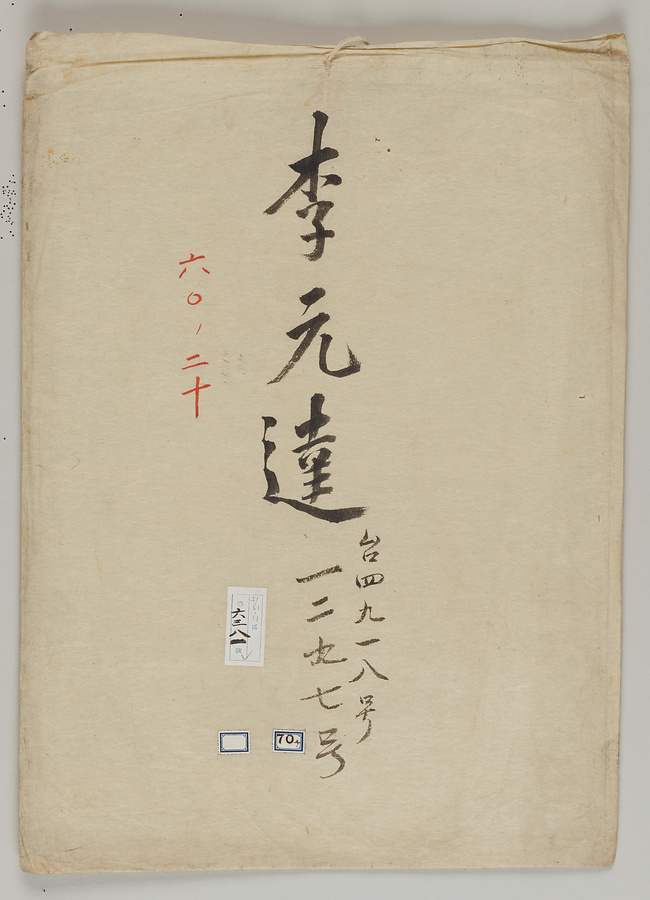 李元達
台四九一八号
一二九七号
六〇、二十
六三八一
70